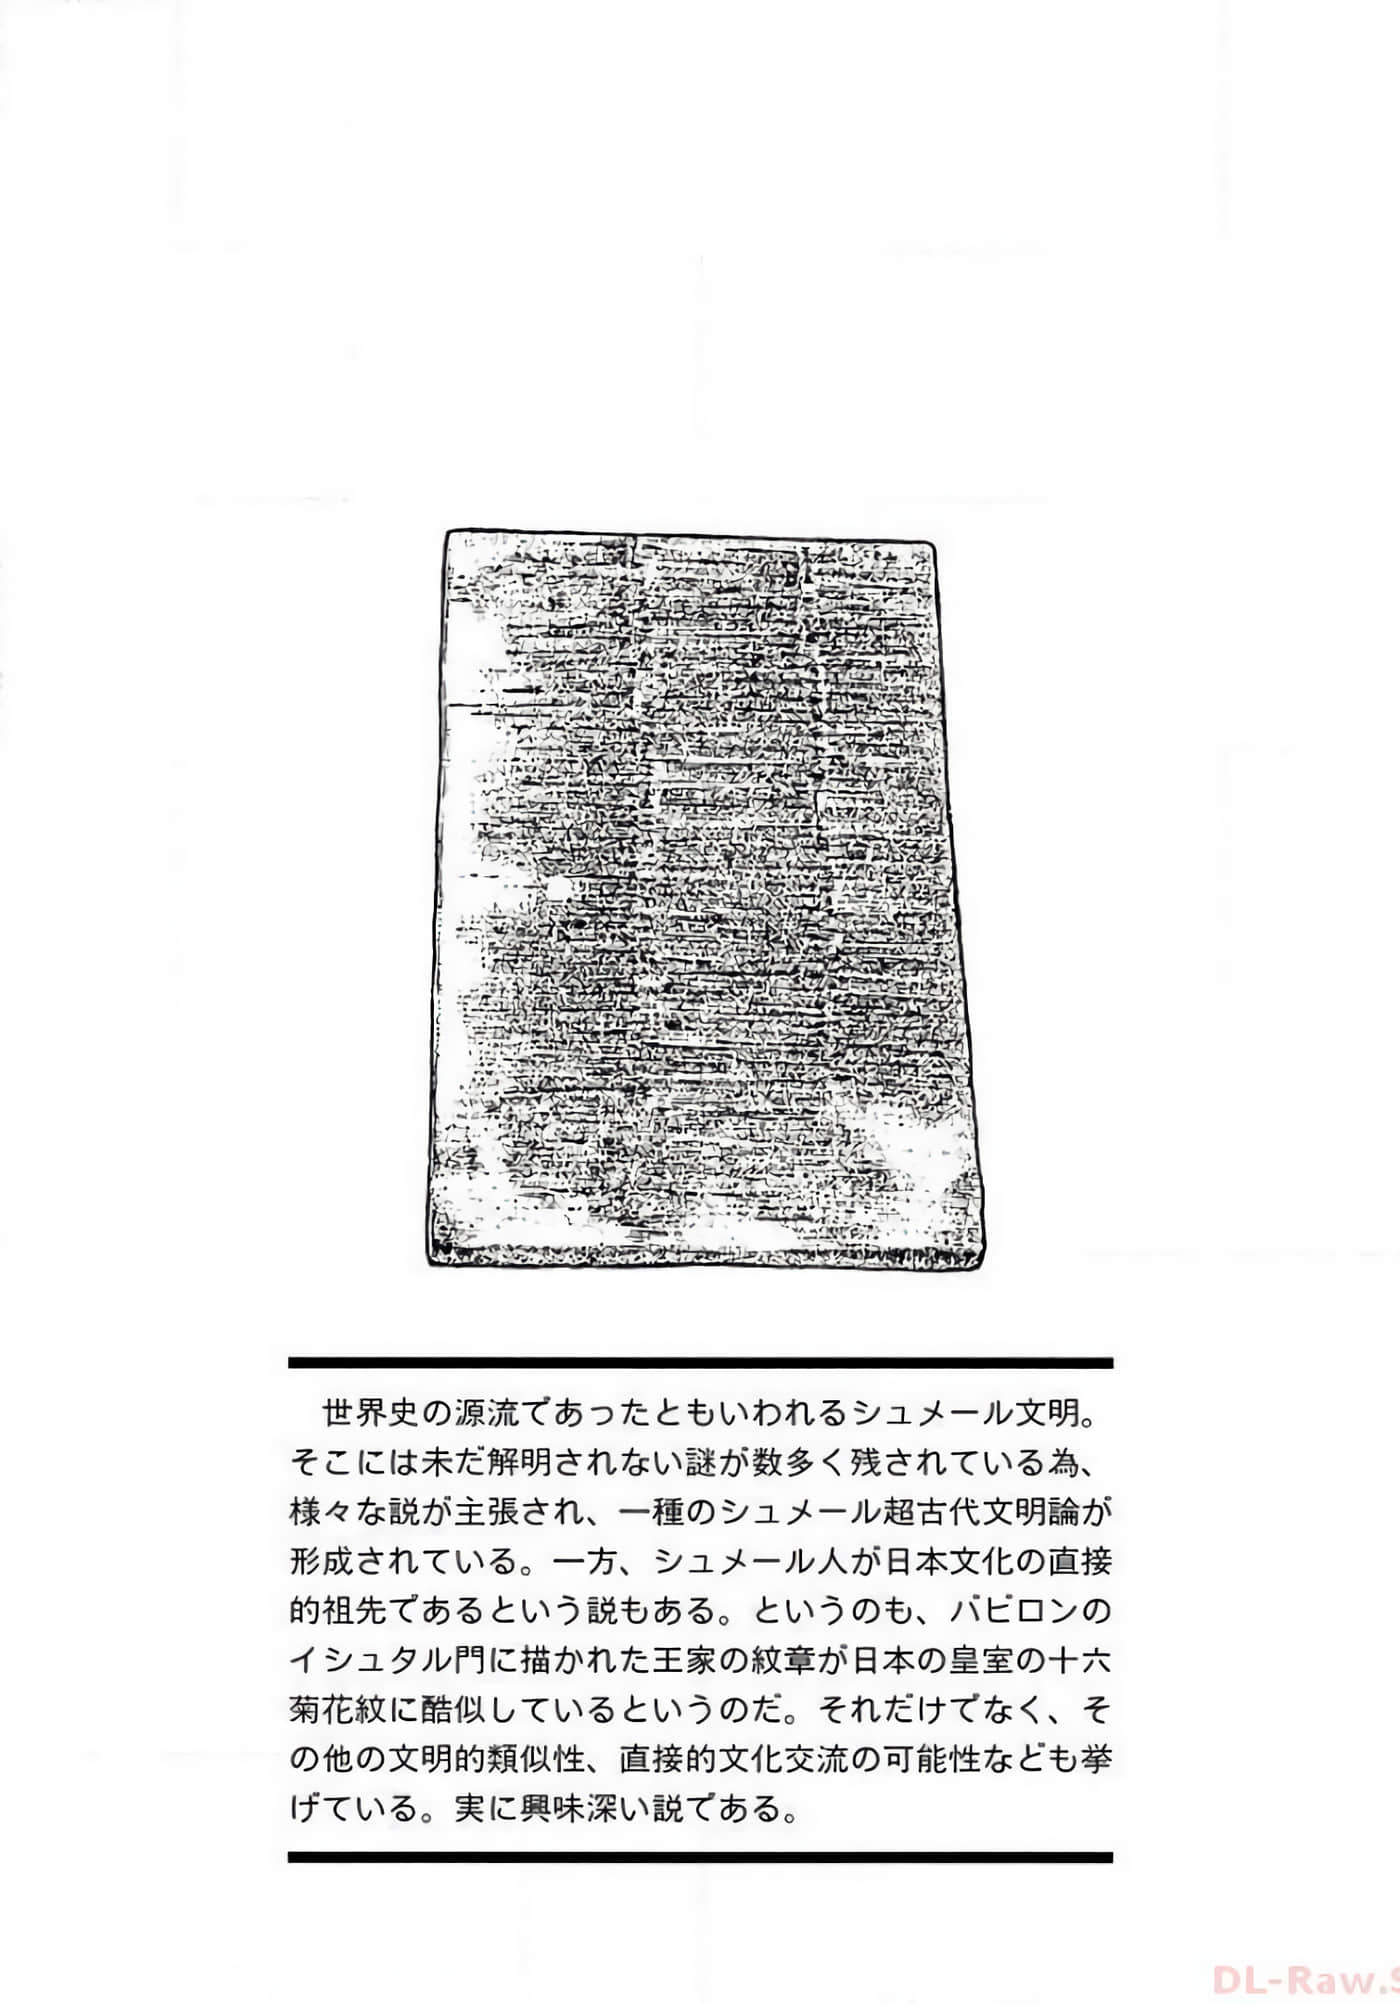 世界史の源流であったともいわれるシュメール文明。
そこには未だ解明されない謎が数多く残されている為、
様々な説が主張され、一種のシュメール超古代文明論が
形成されている。一方、シュメール人が日本文化の直接
的祖先であるという説もある。というのも、バビロンの
イシュタル門に描かれた王家の紋章が日本の皇室の十六
菊花紋に酷似しているというのだ。それだけでなく、そ
の他の文明的類似性、直接的文化交流の可能性なども挙
げている。実に興味深い説である。
DL-Raw.S